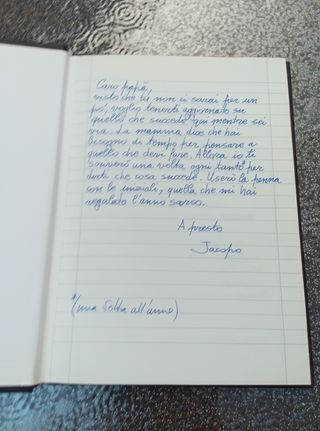 Caro papà,
visto che tu non ci sarai per un
po', voglio tenerti aggiornato su
quello che succede qui mentre sei
via. La mamma dice che hai
bisogno di tempo per pensare a
quello che devi fare. Allora io ti
scriverò una volta ogni tanto* per
dirti che cosa succede. Userò la penna
con le iniziali, quella che mi hai
regalato l'anno scorso.
A presto
Jacopo
*(una volta all'anno)